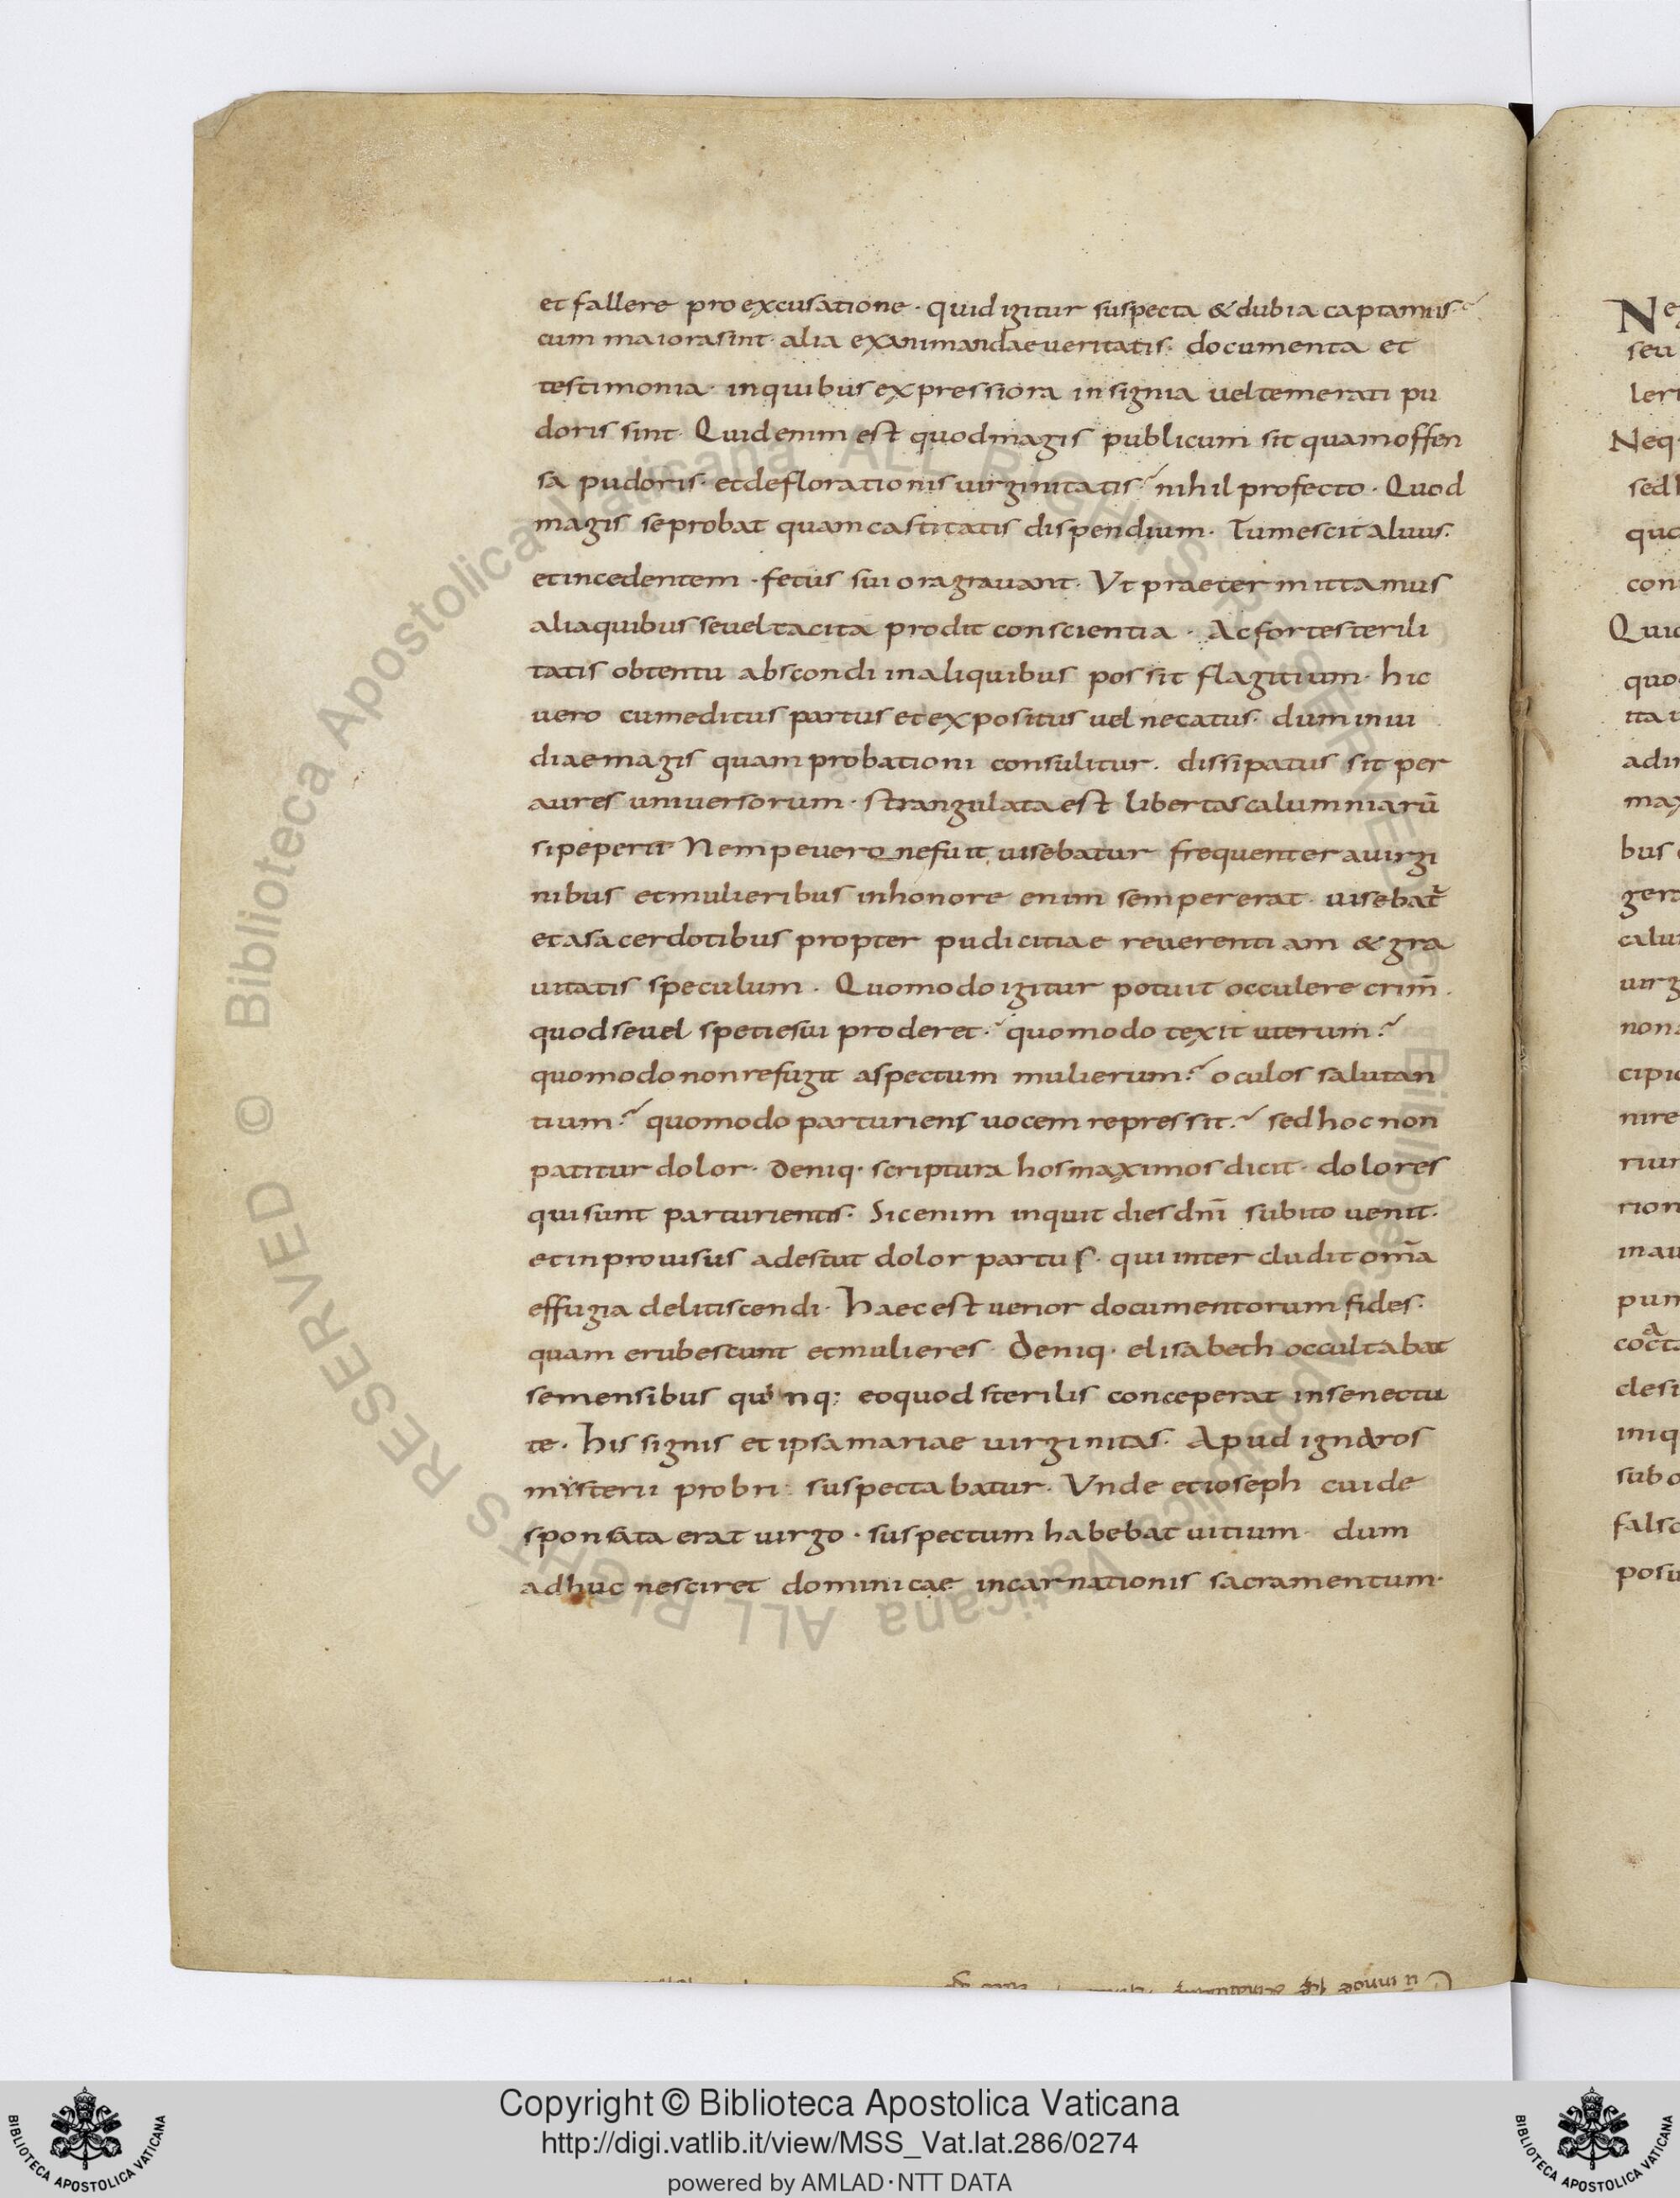 et fallere pro excusatione · quid igitur suspecta & dubia captamus?
cum maiora sint · alia examinandae veritatis · documenta et
testimonia · in quibus expressiora insignia vel temerati pu
doris sint · Quid enim est quod magis publicum sit quam offen
sa pudoris · et deflorationis virginitatis? nihil profecto · Quod
magis se probat quam castitatis dispendium · Tumescit aluus ·
et incedentem · fetus sui ora gravant · Ut praetermittamus
alia quibus se vel tacita prodit conscientia · Ac forte sterili
tatis obtentu abscondi in aliquibus possit flagitium · hic
vero cum editus partus et expositus vel necatus · dum inui
diae magis quam probationi consulitur · dissipatus sit per
aures universorum · strangulata est libertas calumniarū
si peperit Nempe vero ne fuit visebatur frequenter a virgi
nibus et mulieribus in honore enim semper erat · visebat̄
et a sacerdotibus propter pudicitiae reverentiam & gra
vitatis speculum · Quomodo igitur potuit occulere crim̄ ·
quod se vel speties vi proderet? quomodo texit uterum?
quomodo non refugit aspectum mulierum? oculos salutan
tium? quomodo parturiens vocem repressit? sed hoc non
patitur dolor · deniq· scriptura hos maximos dicit · dolores
qui sunt parturientis · Sic enim inquit dies dn̄i subito venit ·
et inprovisus adest ut dolor partus · qui intercludit om̄a
effugia delitiscendi · haec est verior documentorum fides ·
quam erubescunt et mulieres · deniq· elisabeth occultabat
se mensibus quinq; eo quod sterilis conceperat in senectu
te · his signis et ipsa mariae virginitas · Apud ignaros
mysterii probri · suspectabatur · Unde et ioseph cui de
sponsata erat virgo · suspectum habebat vitium · dum
adhuc nesciret dominicae incarnationis sacramentum ·
© Biblioteca Apostolica Vaticana ALL RIGHTS RESERVED © Biblioteca Apostolica Vaticana ALL RIGHTS RESERVED
Copyright © Biblioteca Apostolica Vaticana
http://digi.vatlib.it/view/MSS_Vat.lat.286/0274
powered by AMLAD·NTT DATA
BIBLIOTECA APOSTOLICA VATICANA
BIBLIOTECA APOSTOLICA VATICANA